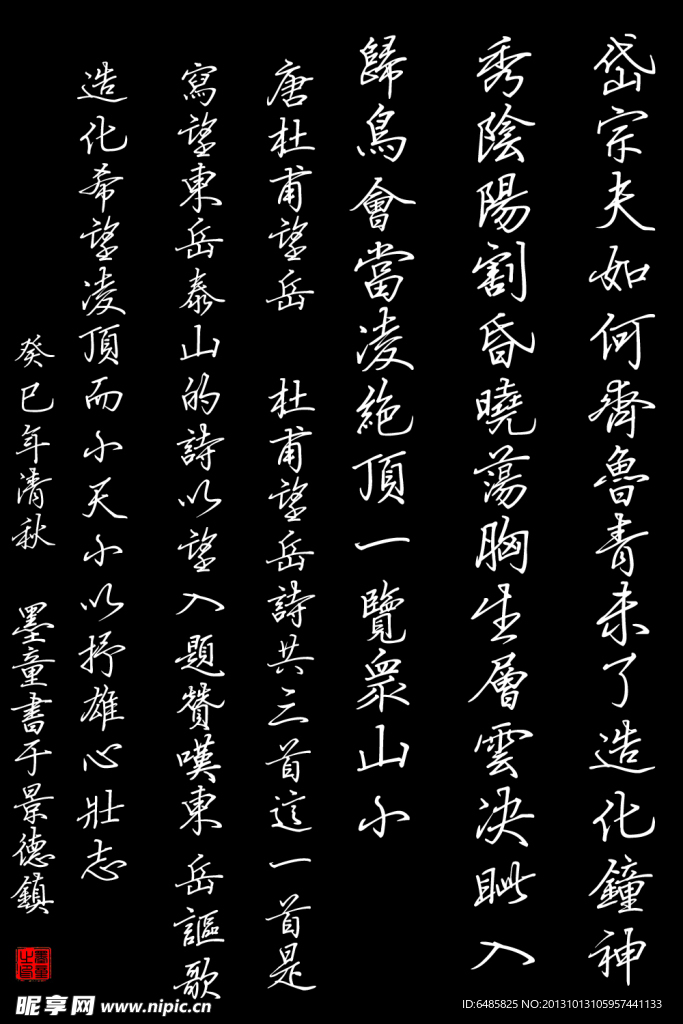 岱宗夫如何齊魯青未了造化鐘神
秀陰陽割昏曉蕩胸生層雲決眦入
歸鳥會當凌絕頂一覽衆山小
唐杜甫望岳 杜甫望岳詩共三首這一首是
寫望東岳泰山的詩以望入題贊嘆東岳謳歌
造化希望凌頂而小天小以抒雄心壯志
癸巳年清秋 墨童書于景德鎮
昵享网 www.nipic.cn
ID:6485825 NO:20131013105957441133